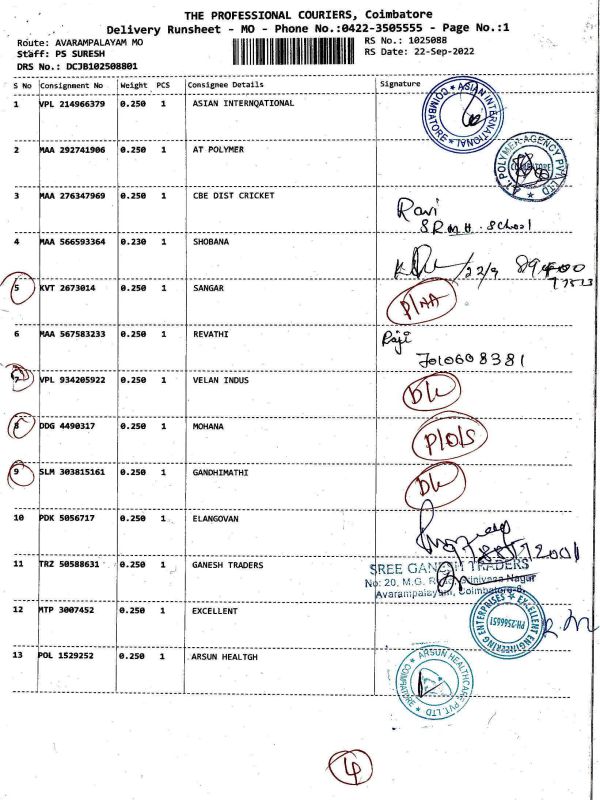 THE PROFESSIONAL COURIERS, Coimbatore
Delivery Runsheet - MO - Phone No.:0422-3505555 - Page No.:1
Route: AVARAMPALAYAM MO RS No.: 1025088
Staff: PS SURESH RS Date: 22-Sep-2022
DRS No.: DCJB102508801
S No Consignment No Weight PCS Consignee Details Signature
1 VPL 214966379 0.250 1 ASIAN INTERNQATIONAL
ASIAN INTERNATIONAL COIMBATORE
2 MAA 292741906 0.250 1 AT POLYMER
A.T. POLYMER AGENCY PVT. LTD COIMBATORE
3 MAA 276347969 0.250 1 CBE DIST CRICKET
Ravi
S.R.M.H. School
4 MAA 566593364 0.230 1 SHOBANA
22/9
5 KVT 2673014 0.250 1 SANGAR
P/NA
6 MAA 567583233 0.250 1 REVATHI
Raji
7010608381
7 VPL 934205922 0.250 1 VELAN INDUS
DL
8 DDG 4490317 0.250 1 MOHANA
P/O/S
9 SLM 303815161 0.250 1 GANDHIMATHI
DL
10 PDK 5056717 0.250 1 ELANGOVAN
11 TRZ 50588631 0.250 1 GANESH TRADERS
SREE GANESH TRADERS
No: 20, M.G. Road, Srinivasa Nagar
Avarampalayam, Coimbatore-6.
12 MTP 3007452 0.250 1 EXCELLENT
EXCELLENT ENGINEERING ENTERPRISES PH:2566651
13 POL 1529252 0.250 1 ARSUN HEALTGH
ARSUN HEALTHCARE PVT. LTD COIMBATORE
4